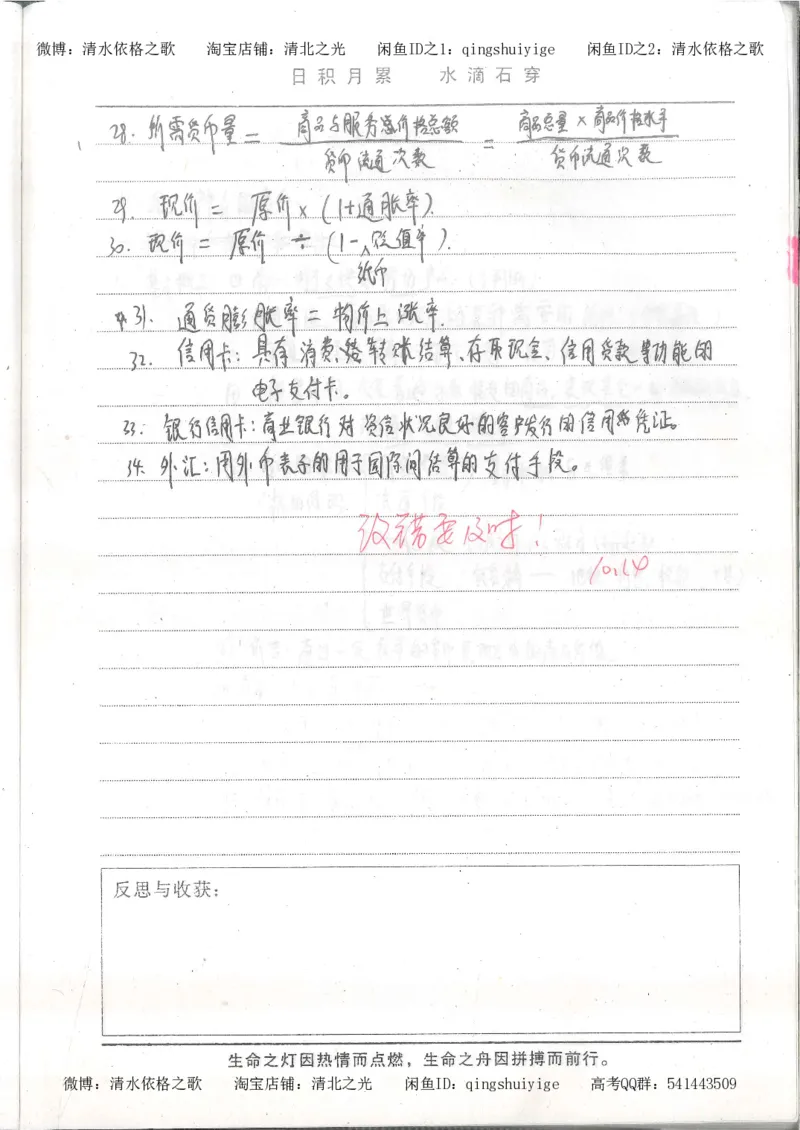 微博：清水依格之歌 淘宝店铺：清北之光 闲鱼ID之1：qingshuiyige 闲鱼ID之2：清水依格之歌
日积月累 水滴石穿
28. 所需货币量 = 商品与服务总价格总额 / 货币流通次数 = 商品总量 × 商品价格水平 / 货币流通次数
29. 现价 = 原价 × (1+通胀率).
30. 现价 = 原价 ÷ (1-纸币贬值率).
31. 通货膨胀率 = 物价上涨率.
32. 信用卡：具有消费、转账结算、存取现金、信用贷款等功能的
电子支付卡。
33. 银行信用卡：商业银行对资信状况良好的客户发行的信用凭证。
34. 外汇：用外币表示的用于国际间结算的支付手段。
改错要及时！
10.14
反思与收获：
生命之灯因热情而点燃，生命之舟因拼搏而前行。
微博：清水依格之歌 淘宝店铺：清北之光 闲鱼ID：qingshuiyige 高考QQ群：541443509